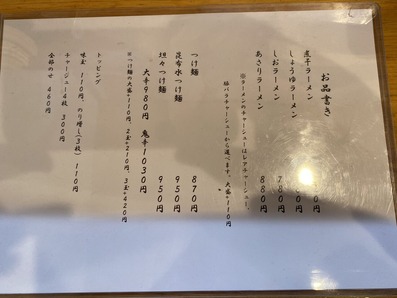 お品書き
煮干ラーメン
しょうゆラーメン
しおラーメン 780円
あさりラーメン 880円
※ラーメンのチャーシューはレアチャーシュー、
豚バラチャーシューから選べます。大盛+110円
つけ麺 870円
昆布水つけ麺 950円
坦々つけ麺 950円
大辛980円 鬼辛1030円
※つけ麺の大盛+110円、2玉+210円、3玉+420円
トッピング
味玉 110円、のり増し(3枚) 110円
チャーシュー4枚 300円
全部のせ 460円